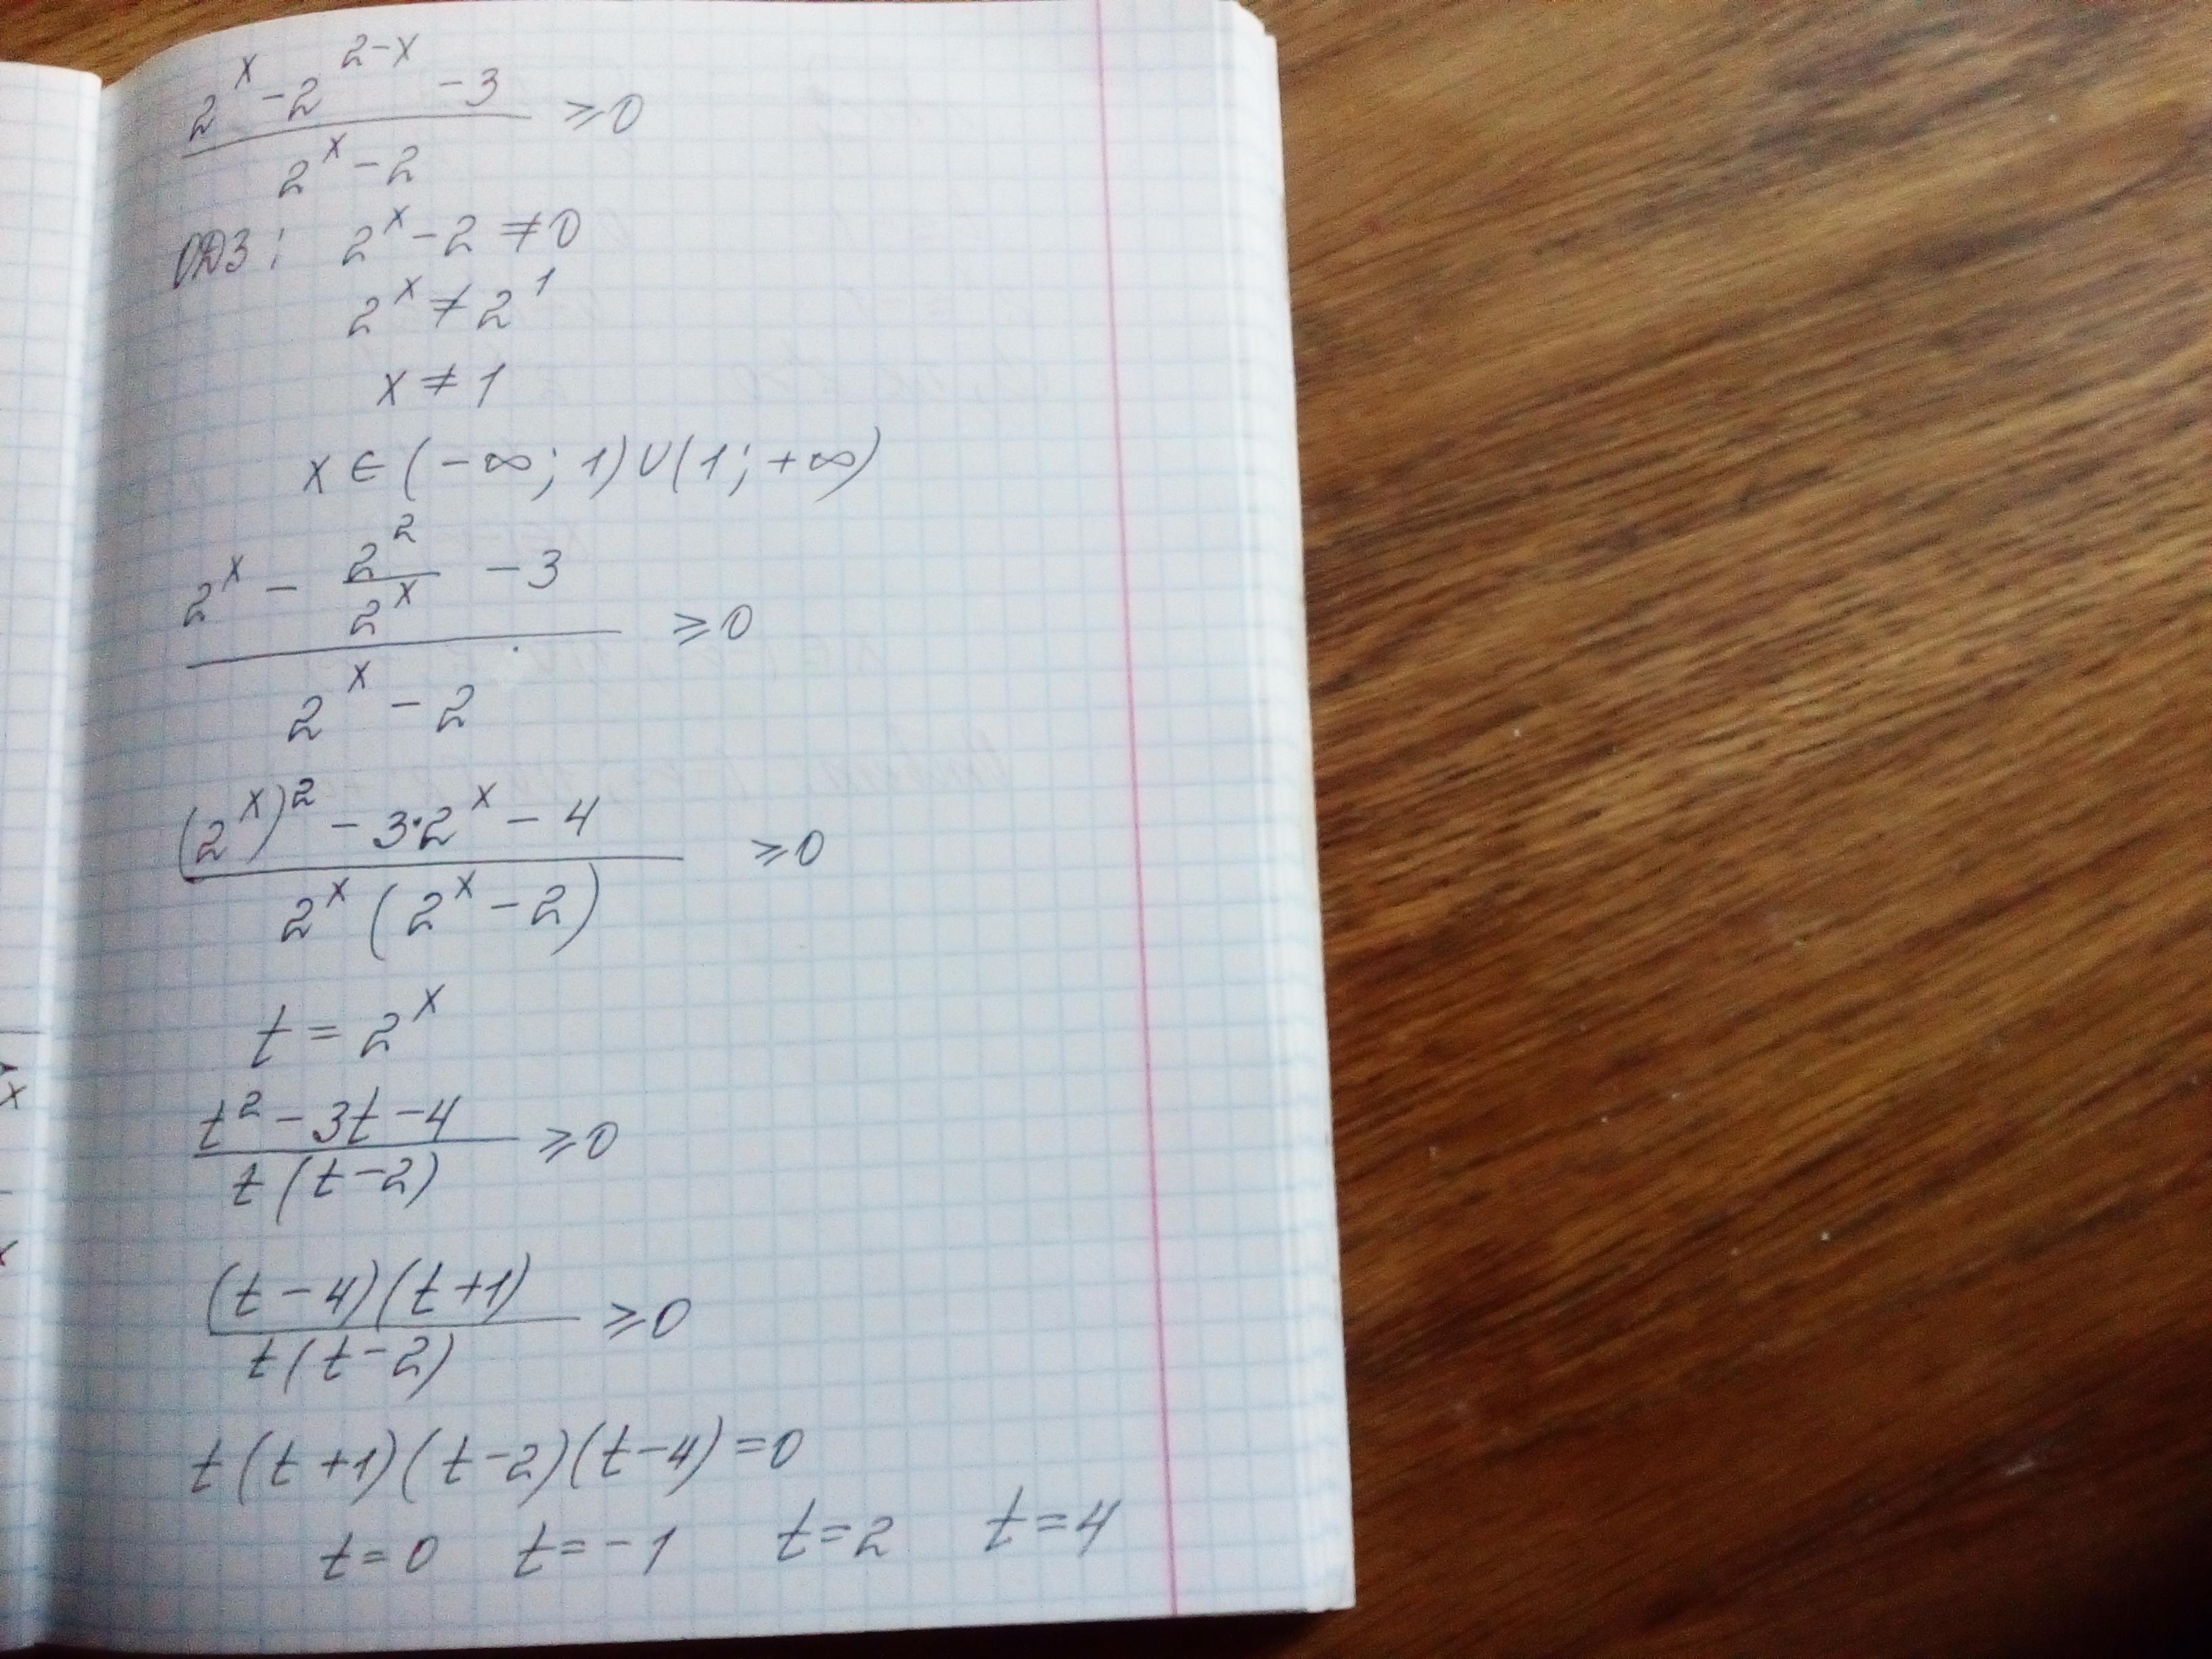 (2^x - 2^(2-x) - 3) / (2^x - 2) ≥ 0
ОДЗ: 2^x - 2 ≠ 0
2^x ≠ 2^1
x ≠ 1
x ∈ (-∞; 1) ∪ (1; +∞)
(2^x - 2^2/2^x - 3) / (2^x - 2) ≥ 0
((2^x)^2 - 3·2^x - 4) / (2^x (2^x - 2)) ≥ 0
t = 2^x
(t^2 - 3t - 4) / (t(t-2)) ≥ 0
((t-4)(t+1)) / (t(t-2)) ≥ 0
t(t+1)(t-2)(t-4)=0
t=0 t=-1 t=2 t=4